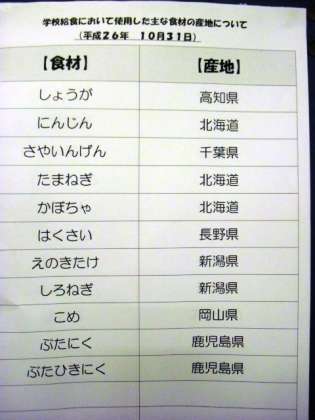 学校給食において使用した主な食材の産地について
(平成26年 10月31日)
【食材】 【産地】
しょうが 高知県
にんじん 北海道
さやいんげん 千葉県
たまねぎ 北海道
かぼちゃ 北海道
はくさい 長野県
えのきたけ 新潟県
しろねぎ 新潟県
こめ 岡山県
ぶたにく 鹿児島県
ぶたひきにく 鹿児島県